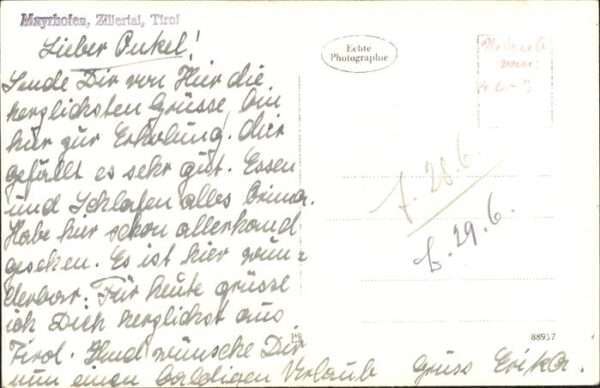 Mayrhofen, Zillertal, Tirol
Lieber Onkel!
Sende Dir von Hier die
herzlichsten Grüsse, bin
hier zur Erholung. Hier
gefällt es sehr gut. Essen
und Schlafen alles prima.
Habe hier schon allerhand
gesehen. Es ist hier wun=
derbar. Für heute grüsse
ich Dich herzlichst aus
Tirol. Und wünsche Dir
nun einen baldigen Urlaub Gruss Erika.
Echte
Photographie
28.6.
29.6.
88957